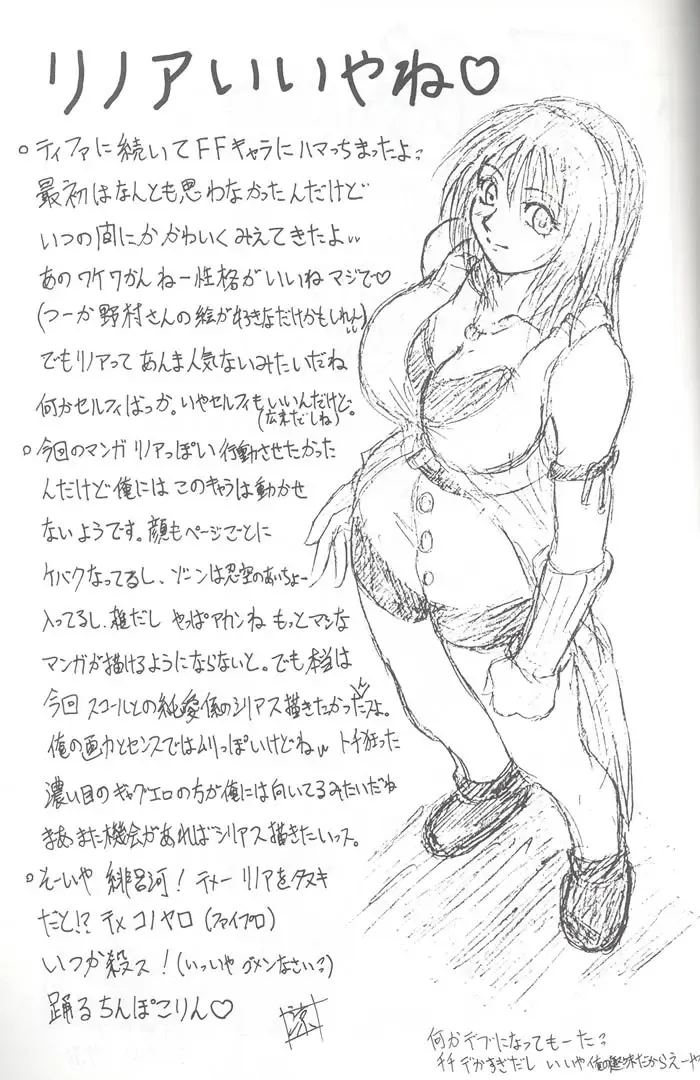 リノアいいやね♡
○ティファに続いてFFキャラにハマっちまったよ
最初はなんとも思わなかったんだけど
いつの間にかかわいくみえてきたよ
あのワケワかんねー性格がいいねマジで♡
(つーか野村さんの絵が好きなだけかもしれん)
でもリノアってあんま人気ないみたいだね
何かセルフィばっか。いやセルフィもいいんだけど。
(広末だしね)
○今回のマンガリノアっぽい行動させたかった
んだけど俺にはこのキャラは動かせ
ないようです。顔もページごとに
ケバクなってるし、ゾーンは忍空のあいちょー
入ってるし、雑だしやっぱアカンね もっとマシな
マンガが描けるようにならないと。でも本当は
今回スコールとの純愛係のシリアス描きたかったスよ。
俺の画力とセンスではムリっぽいけどね トチ狂った
濃い目のギャグエロの方が俺には向いてるみたいだね
まぁまた機会があればシリアス描きたいっス。
○えーいや 緋呂河! テメーリノアをタヌキ
だと!? テメコノヤロ(ファイプロ)
いつか殺ス!(いっいやゴメンなさい)
踊るちんぽこりん♡
何かデブになってもーた
チチデカすぎだし いいや俺の趣味だからえーや